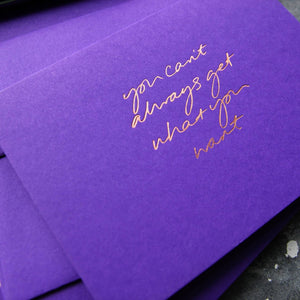 you can't
always get
what you
want